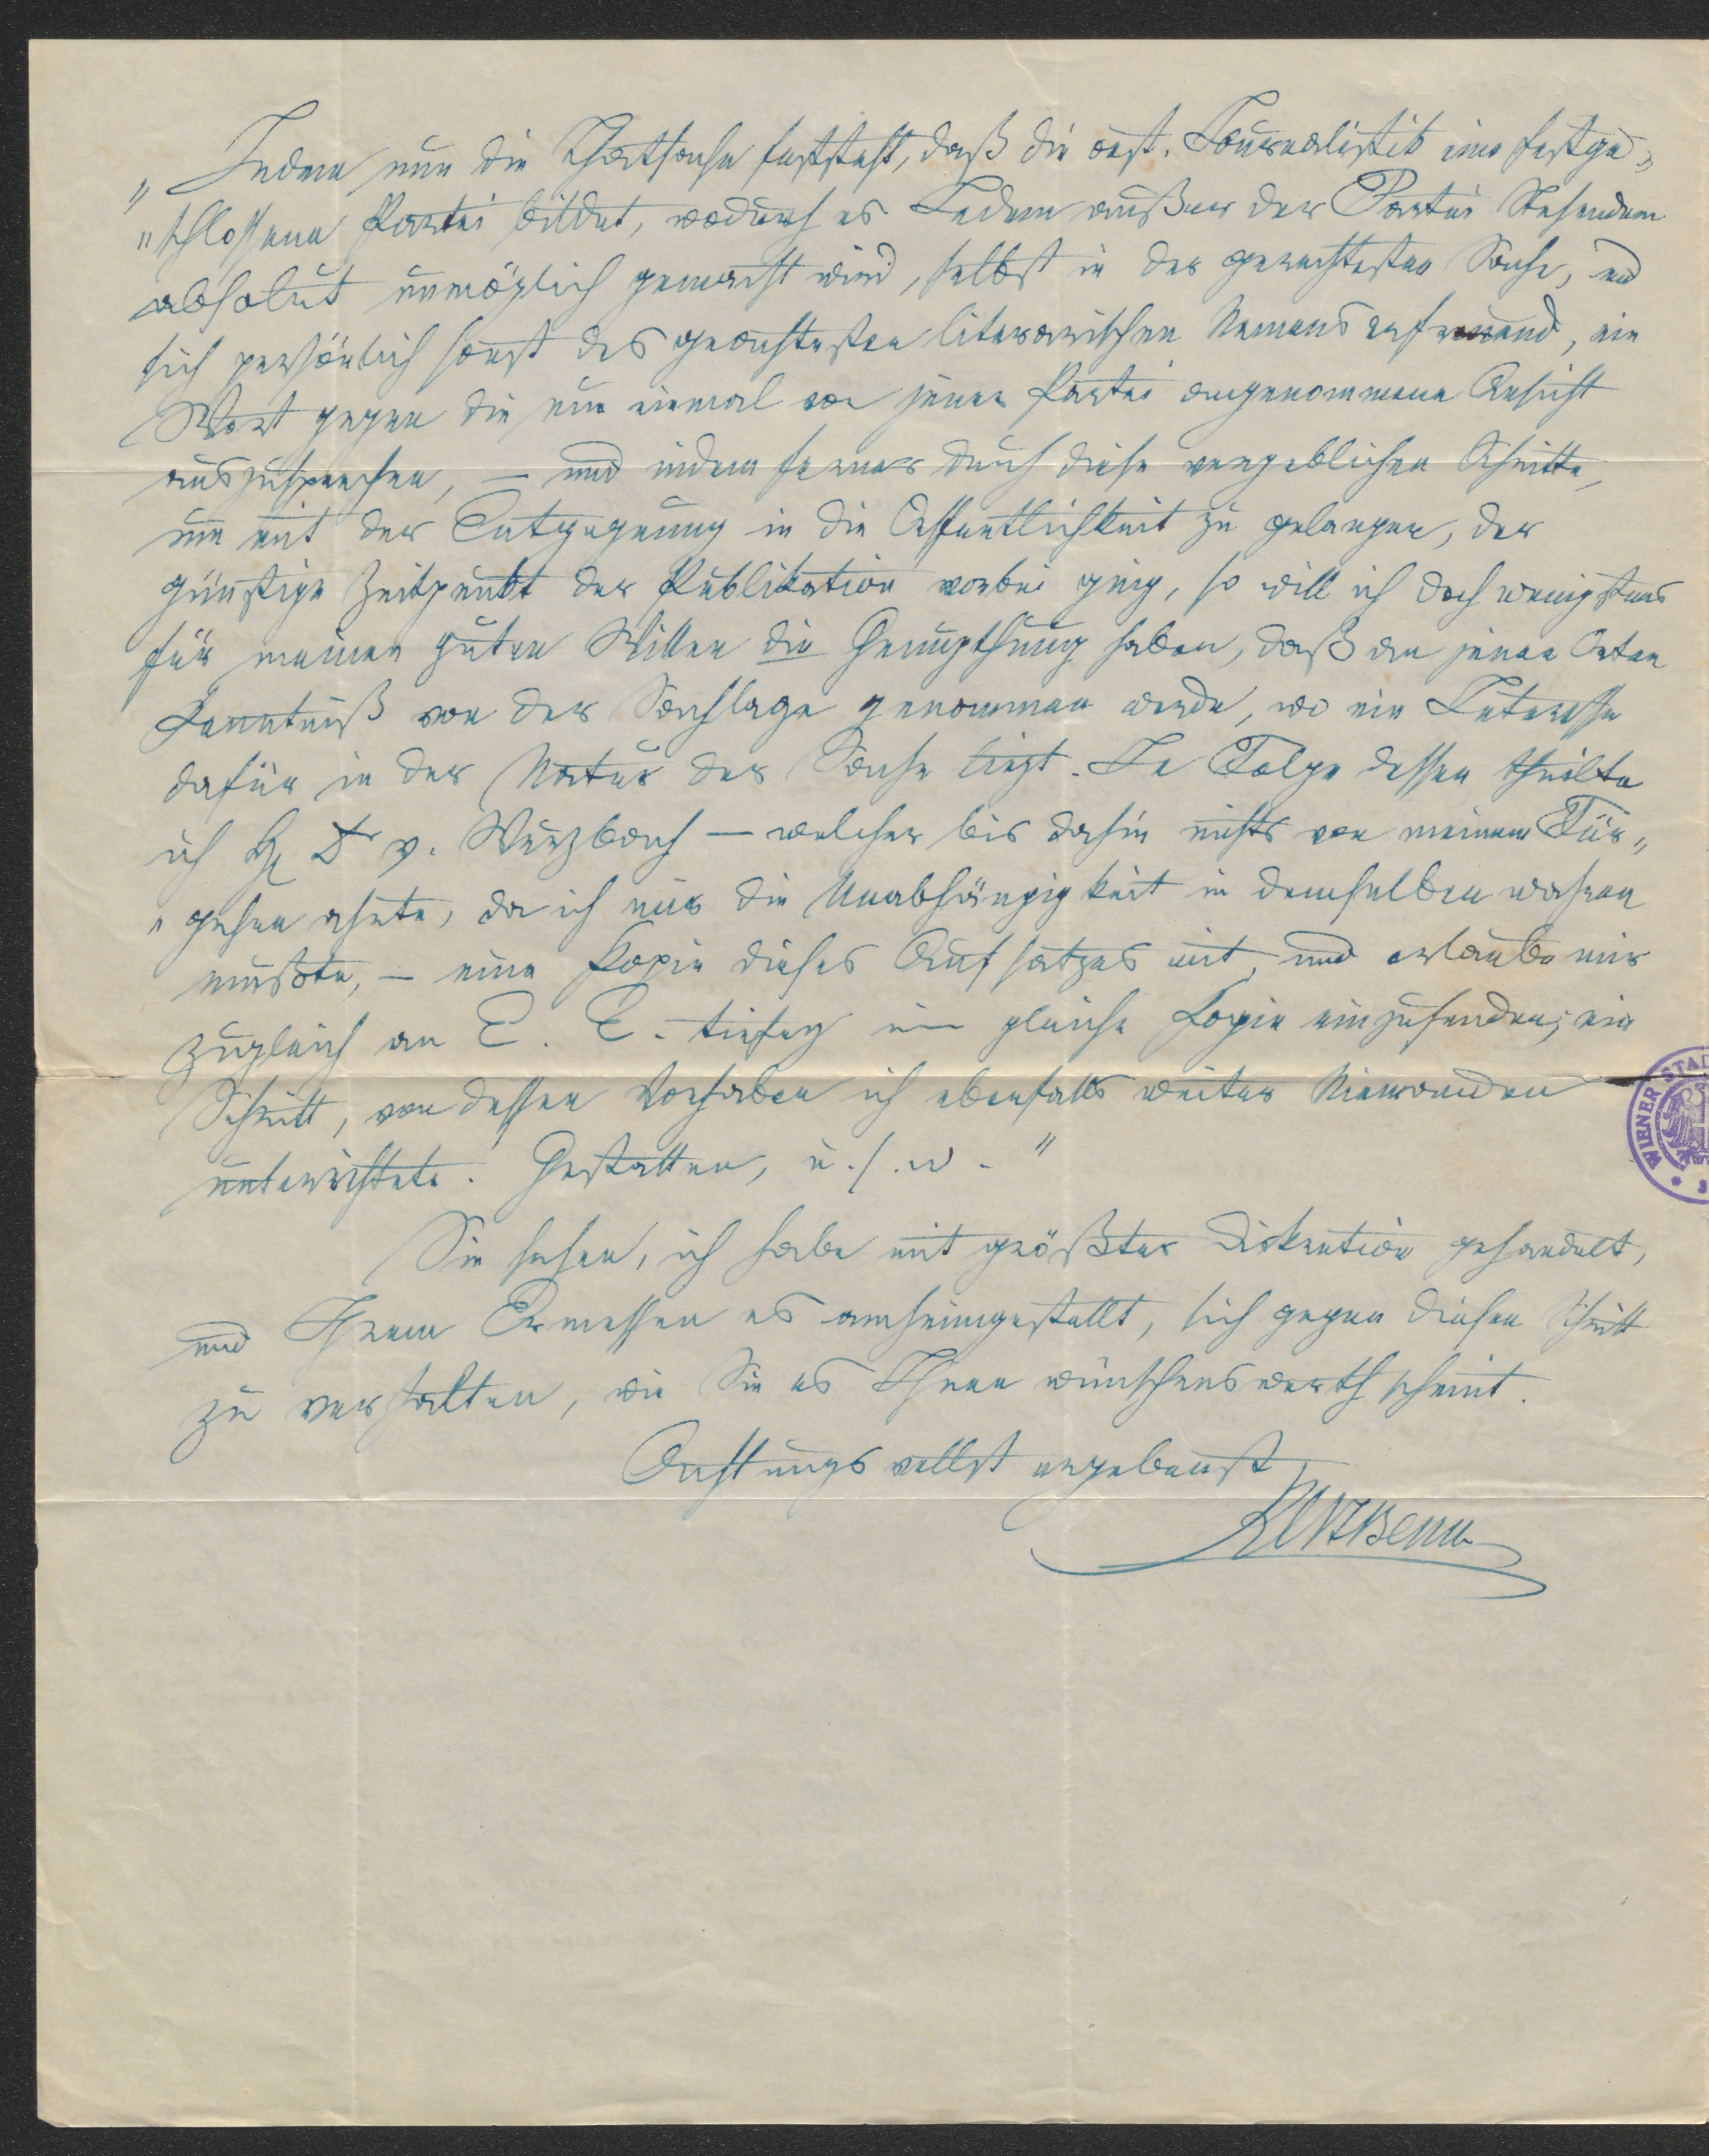 " Indem nun die Thatsache feststeht, daß die oest. Journalistik eine festge„
"schlossene Partei bildet, wodurch es Jedem außer der Partei Stehenden
absolut unmöglich gemacht wird, selbst in der gerechtesten Sache, und
sich persönlich sonst des geachtesten literarischen Namens erfreuend, ein
Wort gegen die nun einmal von jener Partei angenommene Ansicht
auszusprechen, – und indem ferner durch diese vergeblichen Schritte,
um mit der Entgegnung in die Oeffentlichkeit zu gelangen, der
günstige Zeitpunkt der Publikation vorbei ging, so will ich doch wenigstens
für meinen guten Willen die Genugthuung haben, daß an jenen Orten
Kenntniß von der Sachlage genommen werde, wo ein Interesse
dafür in der Natur der Sache liegt. In Folge dessen theilte
ich H. Dr v. Wurzbach – welcher bis dahin nichts von meinem Für„
"gehen ahnte, da ich mir die Unabhängigkeit in demselben wahren
mußte, – eine Kopie dieses Aufsatzes mit, und erlaube mir
zugleich an E. E. eine gleiche Kopie einzusenden; ein
Schritt, von dessen Vorhaben ich ebenfalls weiter Niemanden
unterrichtete. Gestatten, u. s. w. "
Sie sehen, ich habe mit größter Diskretion gehandelt,
und Ihrem Ermessen es anheimgestellt, sich gegen diesen Schritt
zu verhalten, wie Sie es Ihnen wünschenswerth scheint.
Achtungsvollst ergebenst
Kertbeny
WIENER STAD